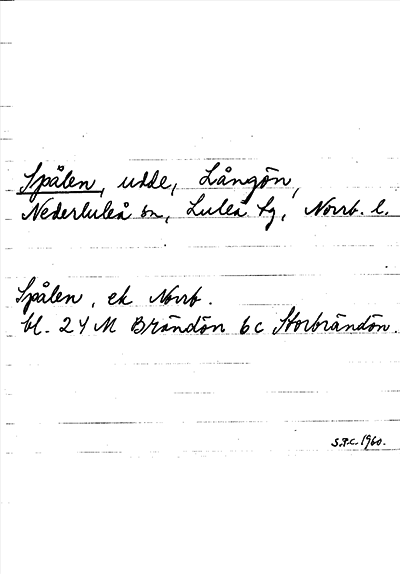 Spålen, udde, Långön,
Nederluleå sn, Luleå tg, Norrb. l.
Spålen, ek Norrb.
bl. 24 M Brändön 6c Storbrändön.
S.P.C. 1960.